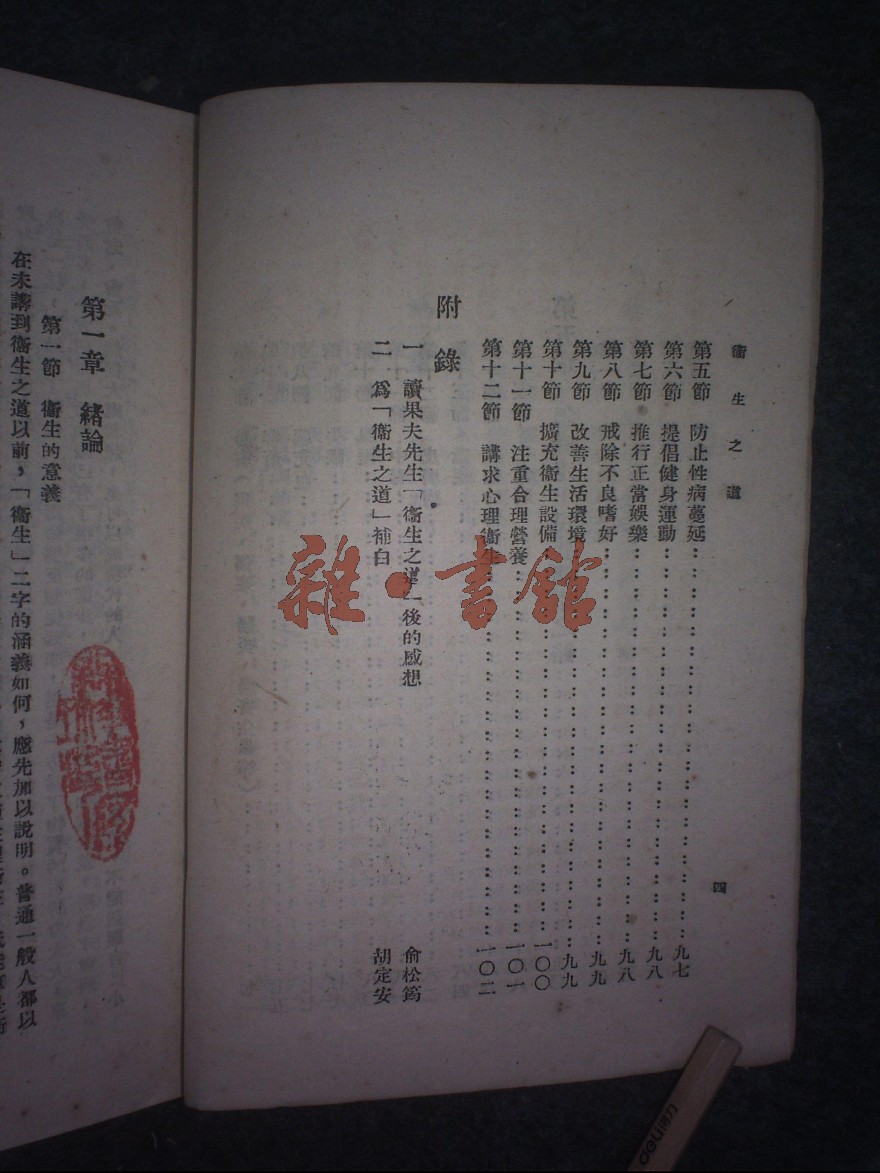 衞生之道
四
第五節 防止性病蔓延……九七
第六節 提倡健身運動……九八
第七節 推行正當娛樂……九八
第八節 戒除不良嗜好……九九
第九節 改善生活環境……九九
第十節 擴充衞生設備……一〇〇
第十一節 注重合理營養……一〇一
第十二節 講求心理衞生……一〇二
附錄
一 讀果夫先生「衞生之道」後的感想 俞松筠
二 爲「衞生之道」補白 胡定安
第一章 緒論
第一節 衞生的意義
在未講到衞生之道以前，「衞生」二字的涵義如何，應先加以說明。普通一般人都以
雜·書館
deli得力